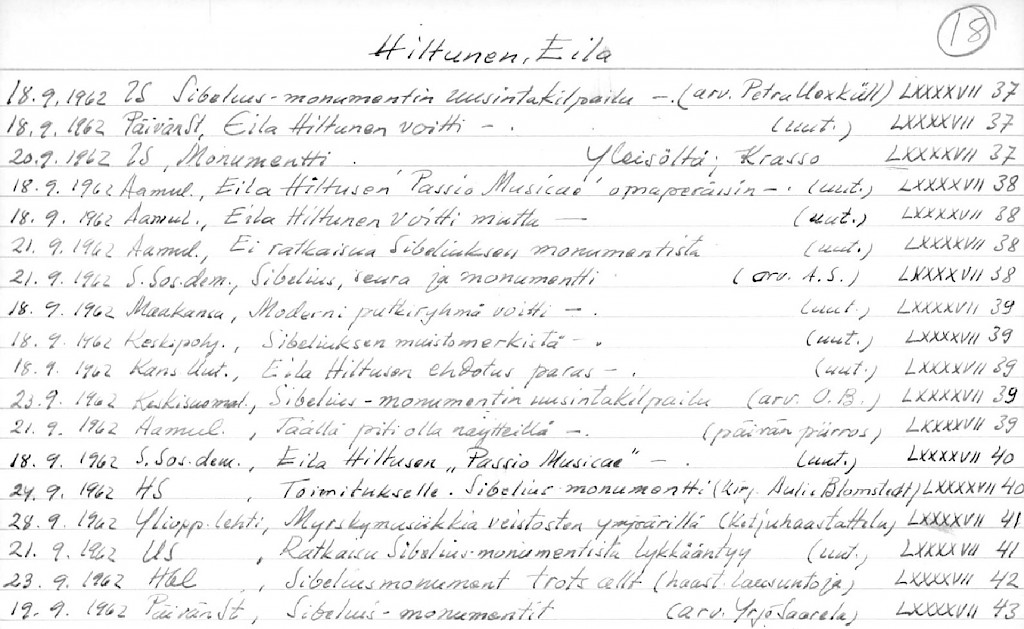 18
Hiltunen, Eila
18.9.1962 US Sibelius-monumentin uusintakilpailu -. (arv. Petra Uexküll) LXXXXVII 37
18.9.1962 PäivänSt, Eila Hiltunen voitti -. (uut.) LXXXXVII 37
20.9.1962 US, Monumentti. Yleisöltä; Krasso LXXXXVII 37
18.9.1962 Aamul., Eila Hiltusen "Passio Musicae" omaperäisin -. (uut.) LXXXXVII 38
18.9.1962 Aamul., Eila Hiltunen voitti mutta - (uut.) LXXXXVII 38
21.9.1962 Aamul., Ei ratkaisua Sibeliuksen monumentista (uut.) LXXXXVII 38
21.9.1962 S.Sos.dem., Sibelius, seura ja monumentti (arv. A.S.) LXXXXVII 38
18.9.1962 Maakansa, Moderni putkiryhmä voitti -. (uut.) LXXXXVII 39
18.9.1962 Keskipohj., Sibeliuksen muistomerkistä -. (uut.) LXXXXVII 39
18.9.1962 Kans Uut., Eila Hiltusen ehdotus paras -. (uut.) LXXXXVII 39
23.9.1962 Keskisuomal., Sibelius-monumentin uusintakilpailu (arv. O.B.) LXXXXVII 39
21.9.1962 Aamul., Täällä piti olla näytteillä -. (päivän pärros) LXXXXVII 39
18.9.1962 S.Sos.dem., Eila Hiltusen "Passio Musicae" -. (uut.) LXXXXVII 40
24.9.1962 HS, Toimitukselle. Sibelius-monumentti (kirj. Aulis Blomstedt) LXXXXVII 40
28.9.1962 Yliopp.lehti, Myrskymusiikkia veistosten ympärillä (ketjuhaastattelu) LXXXXVII 41
21.9.1962 US, Ratkaisu Sibelius-monumentista lykkääntyy (uut.) LXXXXVII 41
23.9.1962 Hbl, Sibeliusmonument trots allt (haast. lausuntoja) LXXXXVII 42
19.9.1962 PäivänSt, Sibelius-monumentit (arv. Yrjö Saarela) LXXXXVII 43